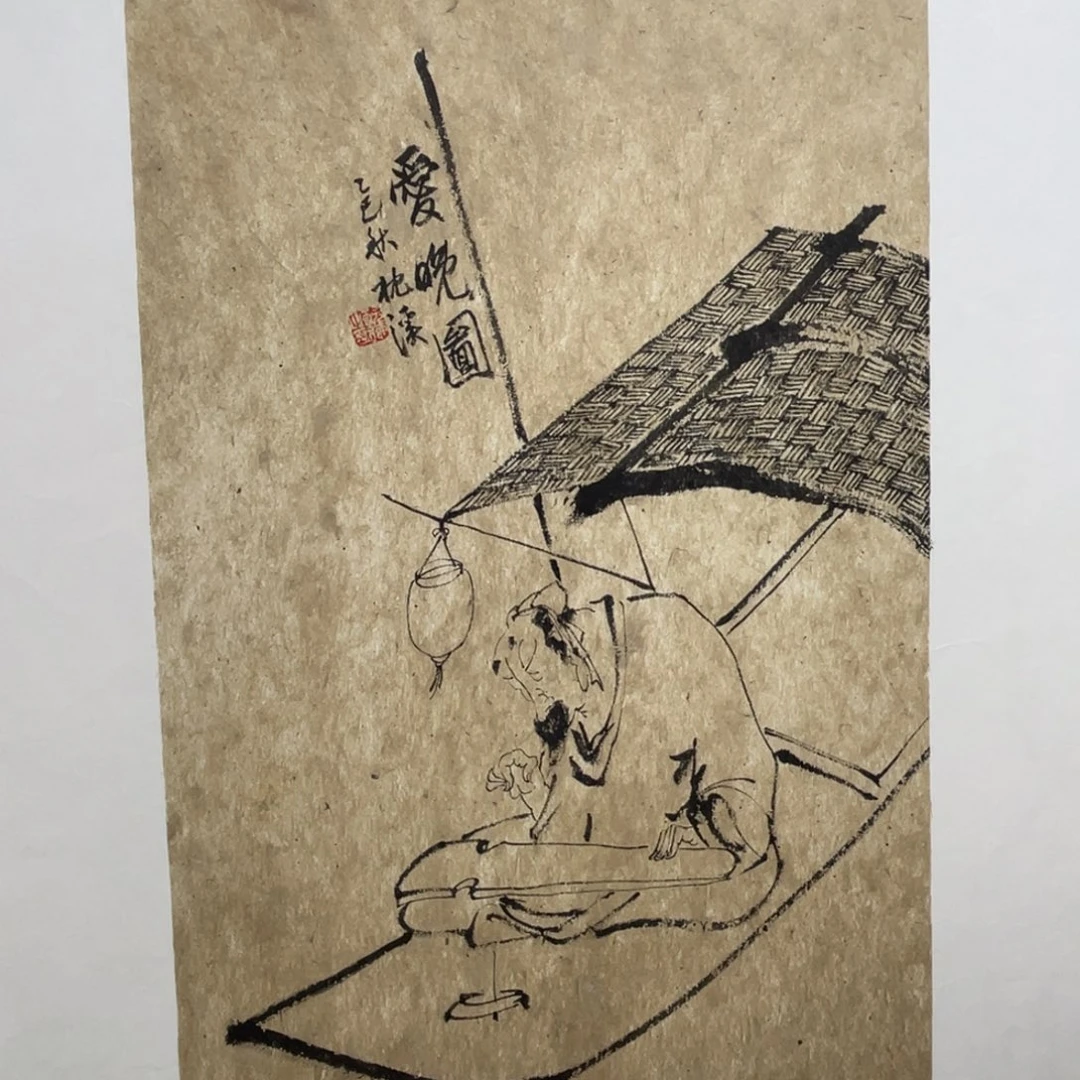 愛晚圖
乙巳秋枕濤